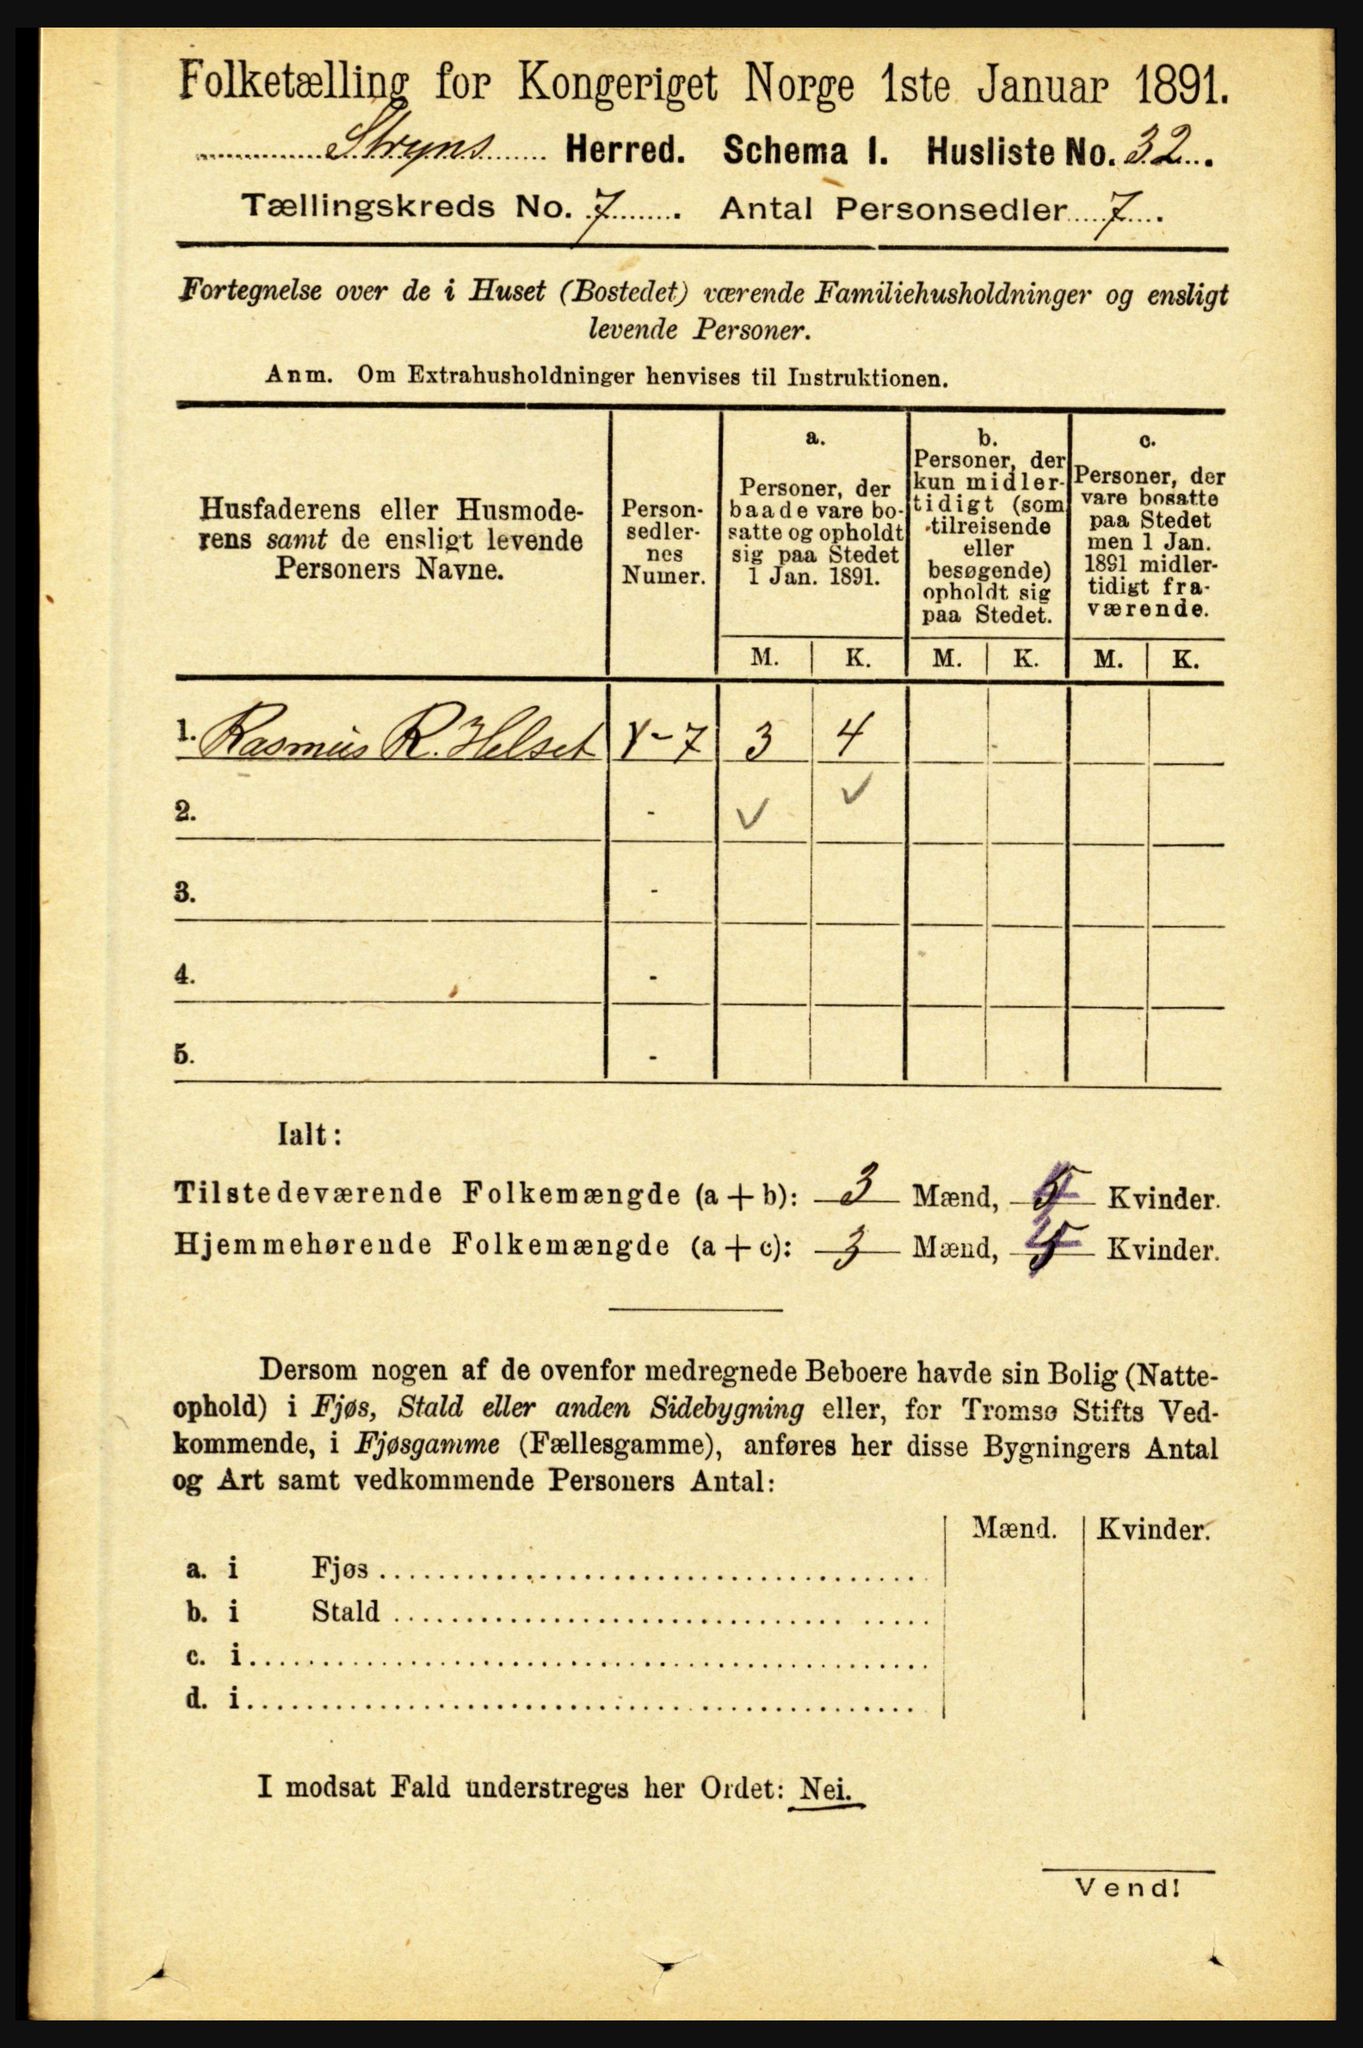 Folketælling for Kongeriget Norge 1ste Januar 1891.
Stryns Herred. Schema I. Husliste No. 32.
Tællingskreds No. 7. Antal Personsedler 7.
Fortegnelse over de i Huset (Bostedet) værende Familiehusholdninger og ensligt
levende Personer.
Anm. Om Extrahusholdninger henvises til Instruktionen.
Husfaderens eller Husmode-
rens samt de ensligt levende
Personers Navne.
Person-
sedler-
nes
Numer.
a.
Personer, der
baade vare bo-
satte og opholdt
sig paa Stedet
1 Jan. 1891.
b.
Personer, der
kun midler-
tidigt (som
tilreisende
eller
besøgende)
opholdt sig
paa Stedet.
c.
Personer, der
vare bosatte
paa Stedet
men 1 Jan.
1891 midler-
tidigt fra-
værende.
M. K. M. K. M. K.
1. Rasmus R. Helset 1-7 3 4
2. - ✓ ✓
3. -
4. -
5. -
Ialt:
Tilstedeværende Folkemængde (a + b): 3 Mænd, 4 Kvinder.
Hjemmehørende Folkemængde (a + c): 3 Mænd, 4 Kvinder.
Dersom nogen af de ovenfor medregnede Beboere havde sin Bolig (Natte-
ophold) i Fjøs, Stald eller anden Sidebygning eller, for Tromsø Stifts Ved-
kommende, i Fjøsgamme (Fællesgamme), anføres her disse Bygningers Antal
og Art samt vedkommende Personers Antal:
Mænd. Kvinder.
a. i Fjøs
b. i Stald
c. i
d. i
I modsat Fald understreges her Ordet: Nei.
Vend!